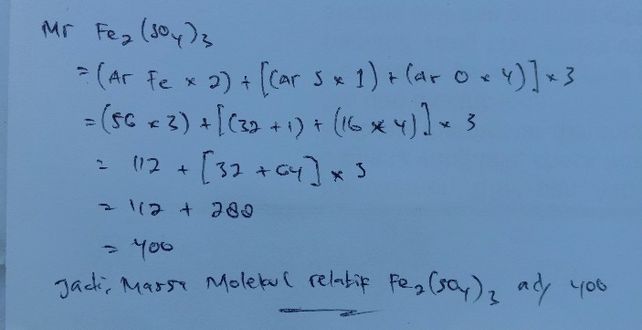 Mr Fe₂(SO₄)₃
= (Ar Fe x 2) + [(ar S x 1) + (ar O x 4)] x 3
= (56 x 3) + [(32 + 1) + (16 x 4)] x 3
= 112 + [32 + 64] x 3
= 112 + 288
= 400
Jadi, Massa Molekul relatif Fe₂(SO₄)₃ adl 400